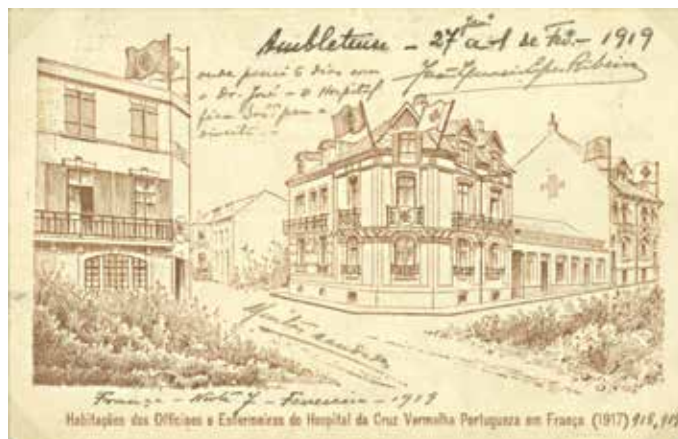 Ambleteuse – 27 Janº a 1 de Fevº – 1919
onde passei 6 dias com
o Dr. José – o Hospital
fica para a
direita –
Muitas saudades
França – Nota 7 – Fevereiro – 1919
Habitações dos Officiaes e Enfermeiras do Hospital da Cruz Vermelha Portugueza em França (1917) 918, 919